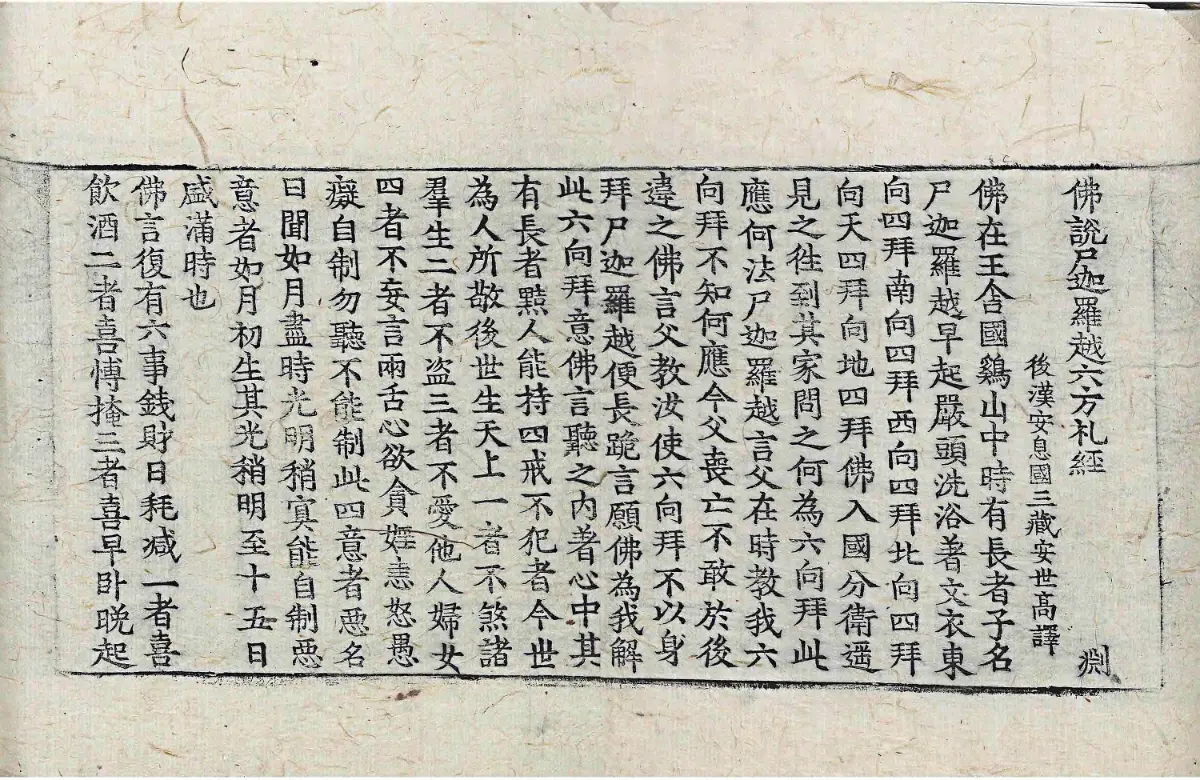 佛說尸迦羅越六方礼經　淵
後漢安息國三藏安世高譯
佛在王舍國鷄山中時有長者子名
尸迦羅越早起嚴頭洗浴著文衣東
向四拜南向四拜西向四拜北向四拜
向天四拜向地四拜佛入國分衛遥
見之徃到其家問之何為六向拜此
應何法尸迦羅越言父在時教我六
向拜不知何應今父喪亡不敢於後
違之佛言父教汝使六向拜不以身
拜尸迦羅越便長跪言願佛為我解
此六向拜意佛言聽之內著心中其
有長者黠人能持四戒不犯者今世
為人所敬後世生天上一者不煞諸
羣生二者不盗三者不愛他人婦女
四者不妄言兩舌心欲貪婬恚怒愚
癡自制勿聽不能制此四意者惡名
日聞如月盡時光明稍冥能自制惡
意者如月初生其光稍明至十五日
盛滿時也
佛言復有六事銭財日耗减一者喜
飲酒二者喜博掩三者喜早卧晩起